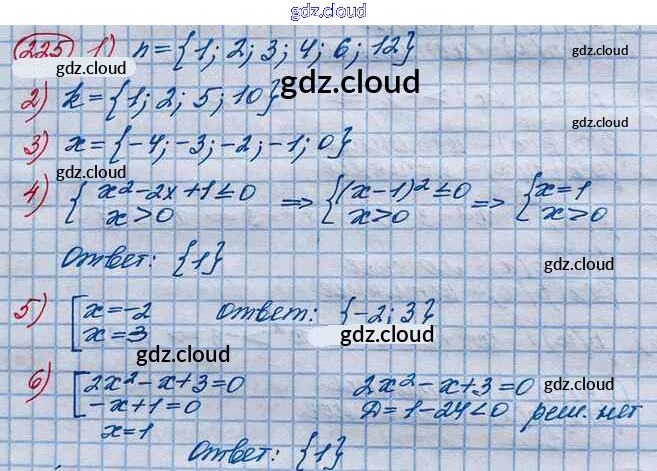 gdz.cloud
225 1) n = {1; 2; 3; 4; 6; 12}
gdz.cloud
gdz.cloud
gdz.cloud
2) k = {1; 2; 5; 10}
gdz.cloud
3) x = {-4; -3; -2; -1; 0}
gdz.cloud
4) { x² - 2x + 1 ≤ 0 => { (x - 1)² ≤ 0 => { x = 1
x > 0 x > 0 x > 0
Ответ: {1}
gdz.cloud
5) [ x = -2 Ответ: {-2; 3}
x = 3
gdz.cloud
gdz.cloud
6) [ 2x² - x + 3 = 0 2x² - x + 3 = 0
gdz.cloud
-x + 1 = 0 D = 1 - 24 < 0 реш. нет
x = 1
Ответ: {1}
gdz.cloud